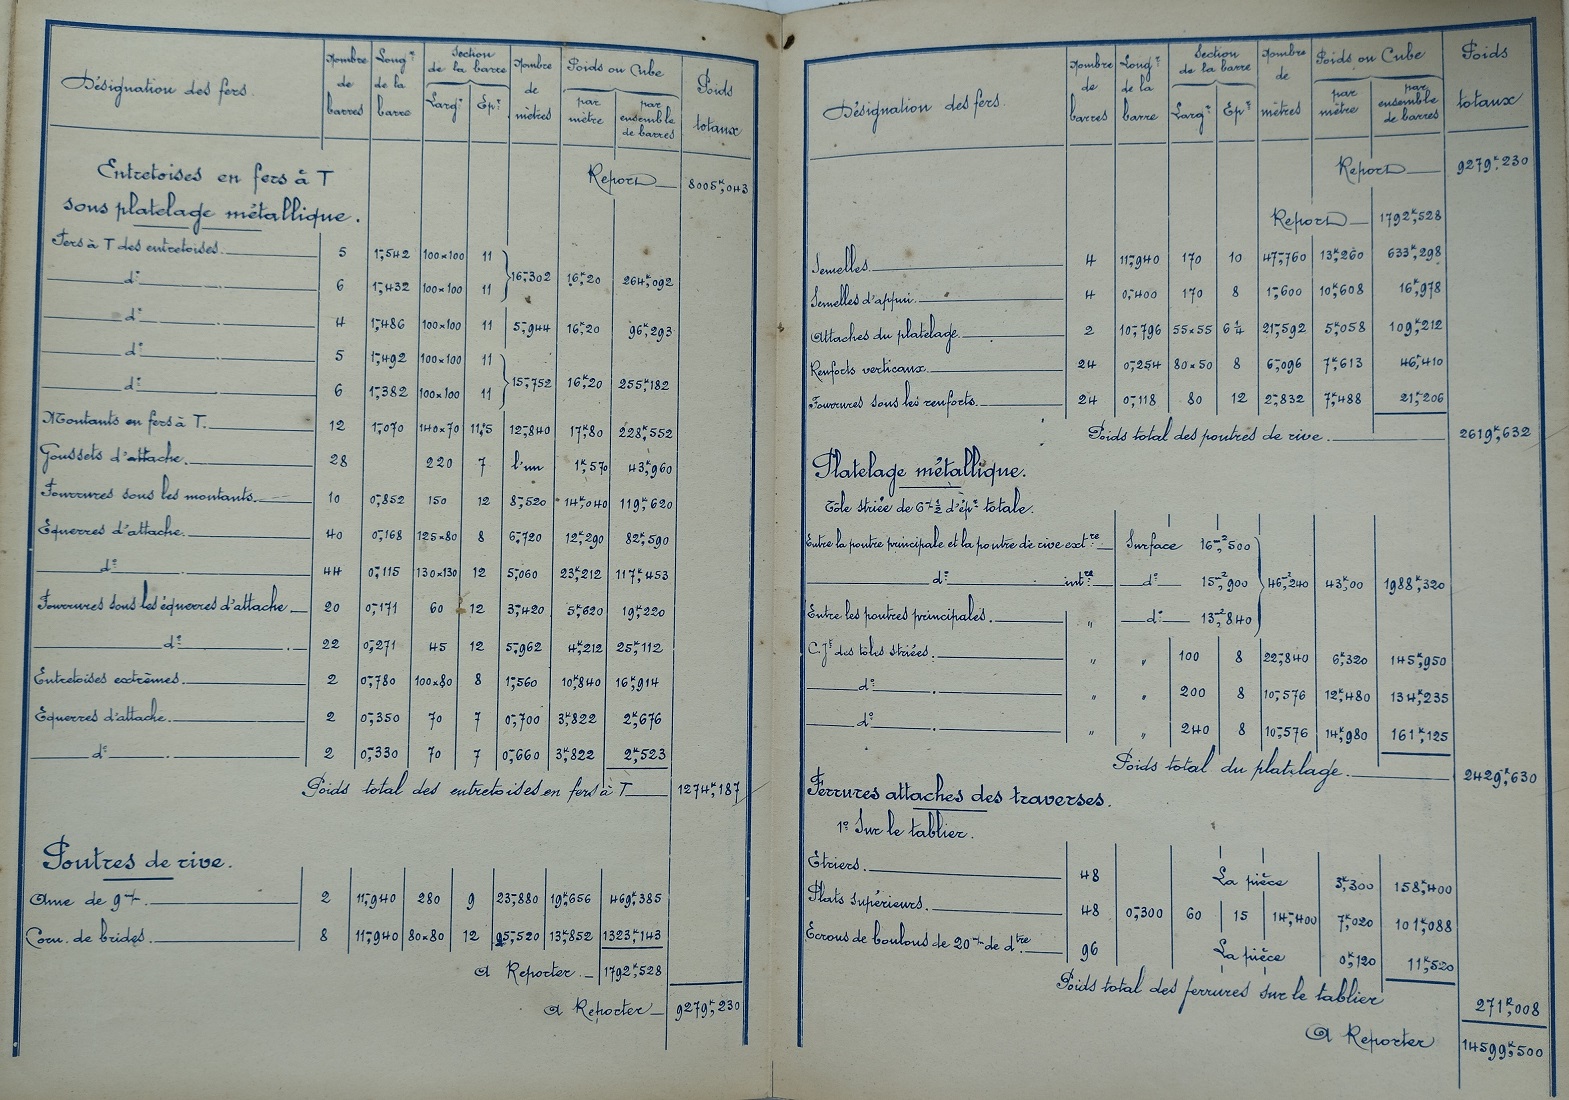 Désignation des fers. Nombre de barres Longr de la barre Section de la barre Largr Epr Nombre de mètres Poids ou Cube par mètre par ensemble de barres Poids totaux
Entretoises en fers à T Report 8005k,043
sous platelage métallique.
Fers à T des entretoises 5 1m,542 100×100 11
do 6 1m,432 100×100 11 16m,302 16k,20 264k,092
do 4 1m,486 100×100 11 5m,944 16k,20 96k,293
do 5 1m,492 100×100 11
do 6 1m,382 100×100 11 15m,752 16k,20 255k,182
Montants en fers à T. 12 1m,070 140×70 11,5 12m,840 17k,80 228k,552
Goussets d'attache. 28 220 7 l'un 1k,570 43k,960
Fourrures sous les montants. 10 0m,852 150 12 8m,520 14k,040 119k,620
Equerres d'attache. 40 0m,168 125×80 8 6m,720 12k,290 82k,590
do 44 0m,115 130×130 12 5m,060 23k,212 117k,453
Fourrures sous les équerres d'attache 20 0m,171 60 12 3m,420 5k,620 19k,220
do 22 0m,271 45 12 5m,962 4k,212 25k,112
Entretoises extrêmes. 2 0m,780 100×80 8 1m,560 10k,840 16k,914
Equerres d'attache. 2 0m,350 70 7 0m,700 3k,822 2k,676
do 2 0m,330 70 7 0m,660 3k,822 2k,523
Poids total des entretoises en fers à T 1274k,187
Poutres de rive.
Ame de 9m/m. 2 11m,940 280 9 23m,880 19k,656 469k,385
Corn. de brides. 8 11m,940 80×80 12 95m,520 13k,852 1323k,143
A Reporter 1792k,528
A Reporter 9279k,230
Désignation des fers. Nombre de barres Longr de la barre Section de la barre Largr Epr Nombre de mètres Poids ou Cube par mètre par ensemble de barres Poids totaux
Report 9279k,230
Report 1792k,528
Semelles 4 11m,940 170 10 47m,760 13k,260 633k,298
Semelles d'appui. 4 0m,400 170 8 1m,600 10k,608 16k,978
Attaches du platelage. 2 10m,796 55×55 6 1/4 21m,592 5k,058 109k,212
Renforts verticaux 24 0m,254 80×50 8 6m,096 7k,613 46k,410
Fourrures sous les renforts. 24 0m,118 80 12 2m,832 7k,488 21k,206
Poids total des poutres de rive 2619k,632
Platelage métallique.
Tôle striée de 6m/m 1/2 d'épr totale.
Entre la poutre principale et la poutre de rive extre Surface 16m2,500
do intre do 15m2,900 46m2,240 43k,00 1988k,320
Entre les poutres principales. " do 13m2,840
C. Jts des tôles striées. " " 100 8 22m,840 6k,320 145k,950
do " " 200 8 10m,576 12k,480 134k,235
do " " 240 8 10m,576 14k,980 161k,125
Poids total du platelage 2429k,630
Ferrures attaches des traverses.
1o Sur le tablier.
Etriers. 48 La pièce 3k,300 158k,400
Plats supérieurs. 48 0m,300 60 15 14m,400 7k,020 101k,088
Ecrous de boulons de 20m/m de dtre 96 La pièce 0k,120 11k,520
Poids total des ferrures sur le tablier 271k,008
A Reporter 14599k,500